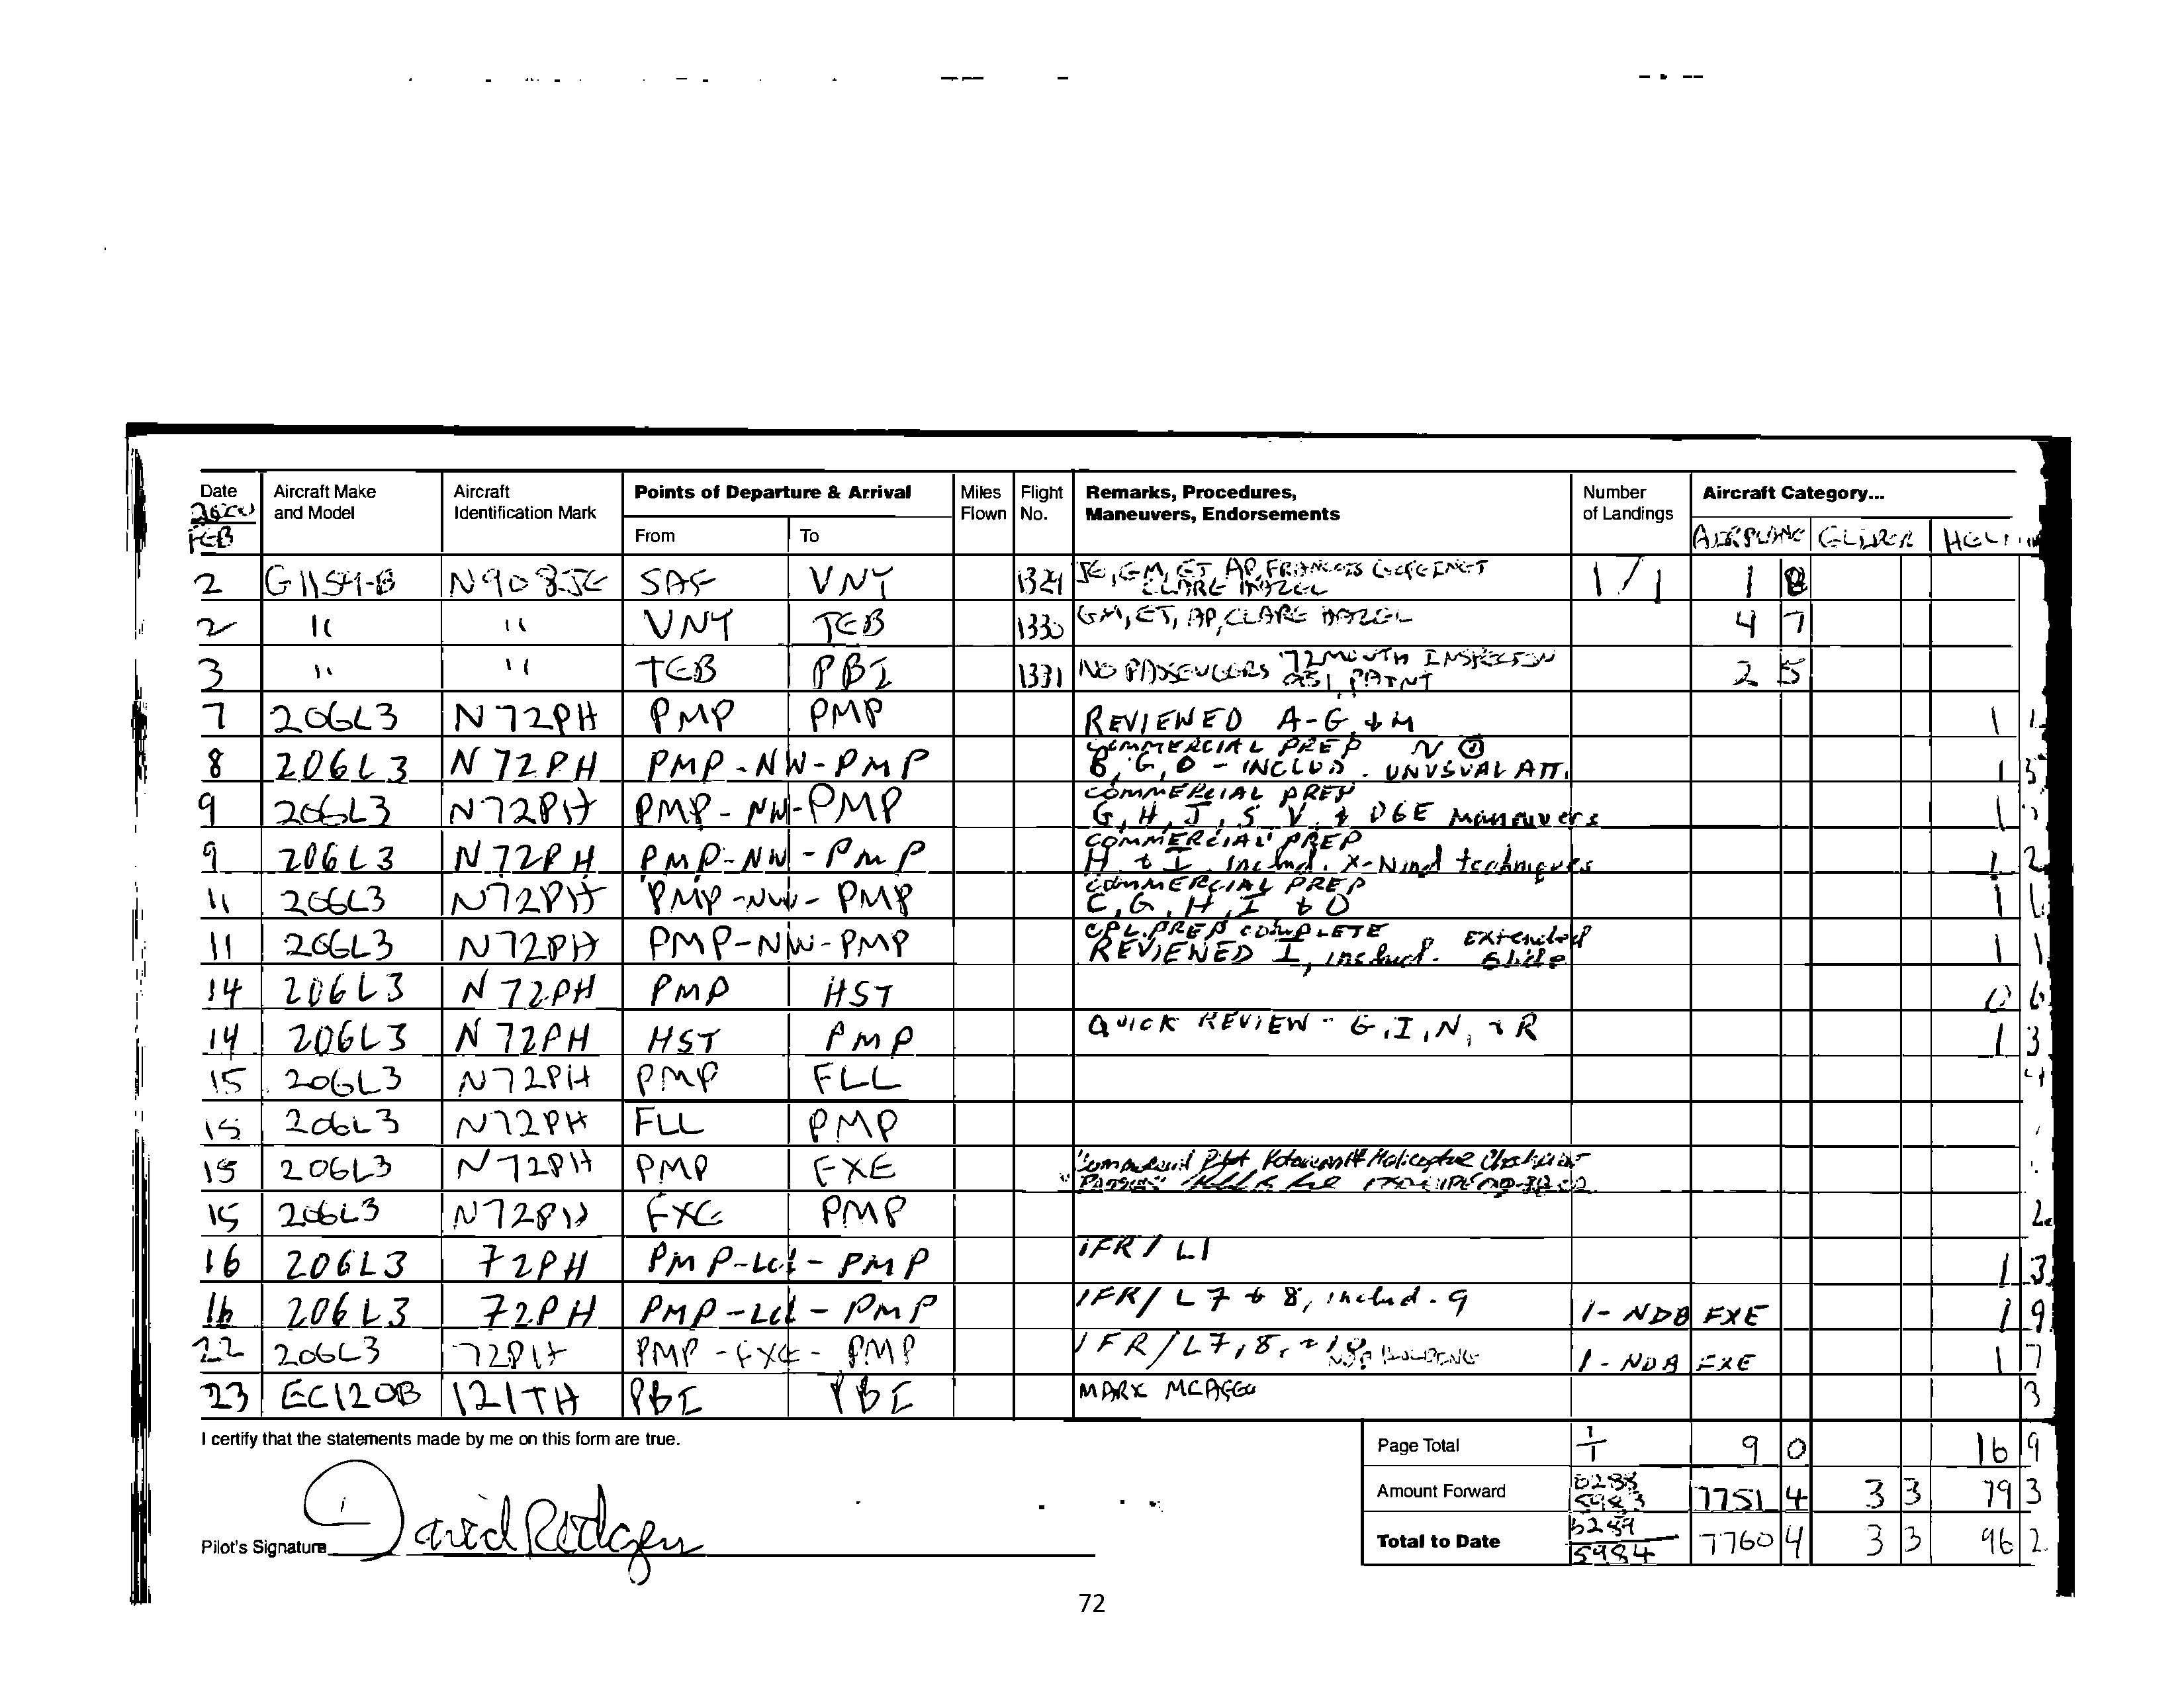 Date Aircraft Make and Model Aircraft Identification Mark Points of Departure & Arrival Miles Flown Flight No. Remarks, Procedures, Maneuvers, Endorsements Number of Landings Aircraft Category...
FEB From To AIRPLANE GLIDER
2 G1159-B N908JE SAF VNY 1329 JE, GM, ET, AP, FRANCES 1/1 1 8
2 " " VNY TEB 1330 GM, ET, AP, CLARE HAZEL 4 7
3 " " TEB PBI 1331 NO PASSENGERS 72 MONTH INSPECTION PAINT 2 5
7 206L3 N72PH PMP PMP REVIEWED A-G, + M 1 1
8 206L3 N72PH PMP-NW-PMP COMMERCIAL PREP B, G, O - INCLUD. UNUSUAL ATT. 1 3
9 206L3 N72PH PMP-NW-PMP COMMERCIAL PREP G, H, J, S, V, + OGE Maneuvers 1
9 206L3 N72PH PMP-NW-PMP COMMERCIAL PREP H + I, Includ. X-Wind techniques 1 2
11 206L3 N72PH PMP-NW-PMP COMMERCIAL PREP C, G, H, I + O 1
11 206L3 N72PH PMP-NW-PMP CPL. PREP COMPLETE REVIEWED I, includ. Extended Glide 1 1
14 206L3 N72PH PMP HST 0 6
14 206L3 N72PH HST PMP QUICK REVIEW - G, I, N, + R 1 3
15 206L3 N72PH PMP FLL
15 206L3 N72PH FLL PMP
15 206L3 N72PH PMP FXE Commercial Pilot Rotorcraft Helicopter Checkride
15 206L3 N72PH FXE PMP 2
16 206L3 72PH PMP-Lcl-PMP IFR / L1 1 3
16 206L3 72PH PMP-Lcl-PMP IFR / L 7 + 8, includ. 9 1- NDB FXE 1 9
22 206L3 72PH PMP-FXE-PMP IFR / L7, 8, + 18 NDB HOLDING 1- NDB FXE 1 7
23 EC120B 121TH PBI PBI MARK 3
I certify that the statements made by me on this form are true.
Page Total 1/1 9 0 16 9
Amount Forward 5983 7751 4 3 3 79 3
Pilot's Signature David Rodgers
Total to Date 5984 7760 4 3 3 96 2
72